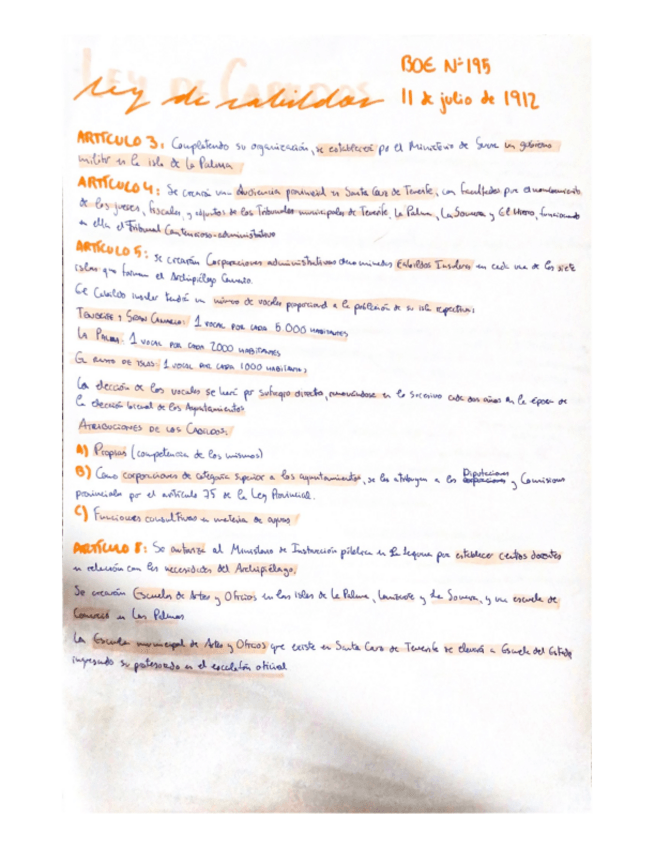 LEY DE CABILDOS
ley de cabildos
BOE Nº 195
11 de julio de 1912
ARTÍCULO 3: Completando su organización, se establecerá por el Ministerio de Guerra un gobierno
militar en la isla de La Palma
ARTÍCULO 4: Se creará una Audiencia provincial en Santa Cruz de Tenerife, con facultades para el nombramiento
de los jueces, fiscales, y adjuntos de los Tribunales municipales de Tenerife, La Palma, La Gomera y El Hierro, funcionando
en ella el Tribunal Contencioso-administrativo
ARTÍCULO 5: Se crearán Corporaciones administrativas denominadas Cabildos Insulares en cada una de las siete
islas que forman el Archipiélago Canario.
El Cabildo insular tendrá un número de vocales proporcional a la población de su isla respectiva:
TENERIFE Y GRAN CANARIA: 1 VOCAL POR CADA 5.000 HABITANTES
LA PALMA: 1 VOCAL POR CADA 2000 HABITANTES
EL RESTO DE ISLAS: 1 VOCAL POR CADA 1000 HABITANTES
La elección de los vocales se hará por sufragio directo, renovándose en lo sucesivo cada dos años en la época de
la elección bienal de los Ayuntamientos
ATRIBUCIONES DE LOS CABILDOS:
A) Propias (competencia de los mismos)
B) Como corporaciones de categoría superior a los ayuntamientos, se les atribuyen a las Diputaciones y Comisiones
provinciales por el artículo 75 de la Ley Provincial.
C) Funciones consultivas en materia de aguas
ARTÍCULO 8: Se autoriza al Ministerio de Instrucción pública en La Laguna para establecer centros docentes
en relación con las necesidades del Archipiélago.
Se crearán Escuelas de Artes y Oficios en las islas de La Palma, Lanzarote y La Gomera, y una escuela de
Comercio en Las Palmas
La Escuela municipal de Artes y Oficios que existe en Santa Cruz de Tenerife se elevará a Escuela del Estado
ingresando su profesorado en el escalafón oficial